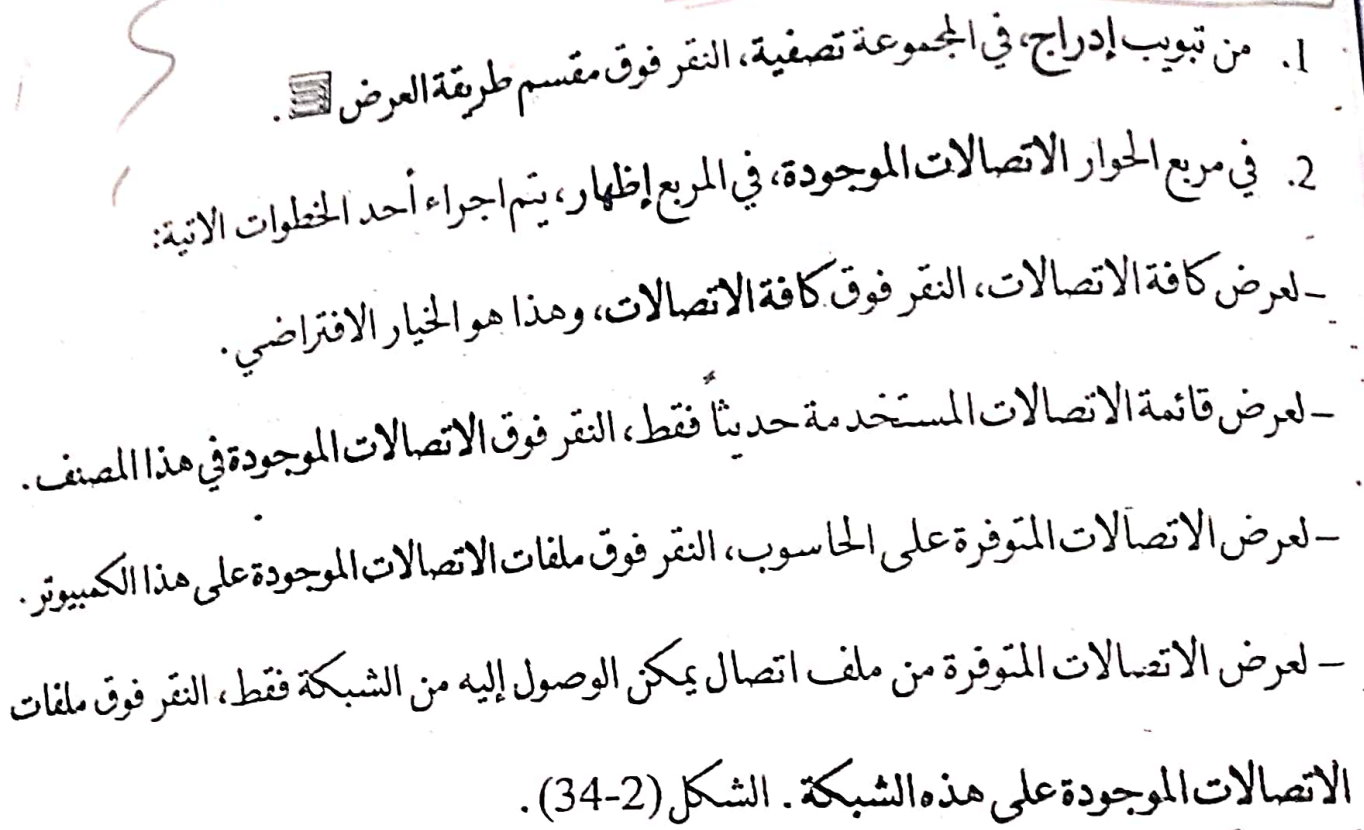 1. من تبويب إدراج، في المجموعة تصفية، النقر فوق مقسم طريقة العرض .
2. في مربع الحوار الاتصالات الموجودة، في المربع إظهار، يتم اجراء أحد الخطوات الاتية:
- لعرض كافة الاتصالات، النقر فوق كافة الاتصالات، وهذا هو الخيار الافتراضي.
- لعرض قائمة الاتصالات المستخدمة حديثاً فقط، النقر فوق الاتصالات الموجودة في هذا المصنف.
- لعرض الاتصالات المتوفرة على الحاسوب، النقر فوق ملفات الاتصالات الموجودة على هذا الكمبيوتر.
- لعرض الاتصالات المتوفرة من ملف اتصال يمكن الوصول إليه من الشبكة فقط، النقر فوق ملفات
الاتصالات الموجودة على هذه الشبكة. الشكل (2-34).